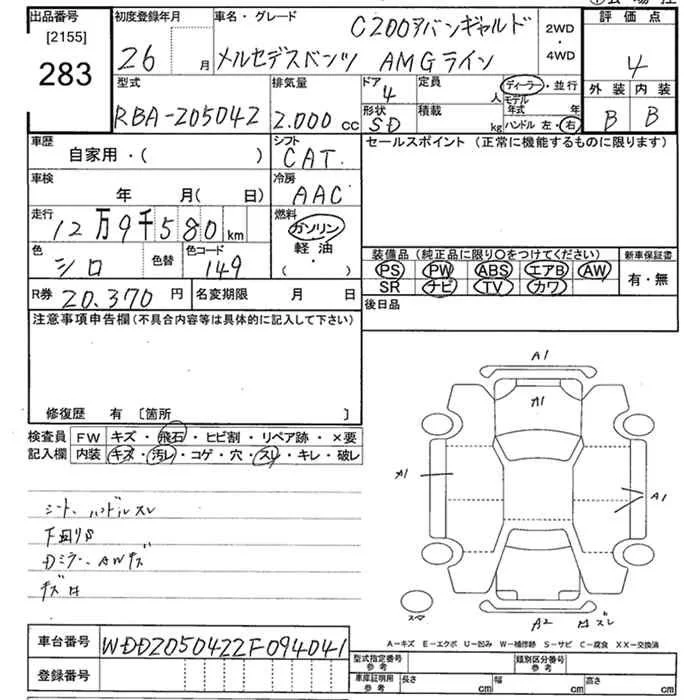 出品番号 初度登録年月 車名・グレード C200アバンギャルド 2WD・4WD 評価点
[2155]
283 26 月 メルセデスベンツ AMGライン 4
型式 排気量 ドア 4 定員 人 ディーラー・並行 外装 内装
RBA-205042 2.000 cc 形状 SD 積載 kg モデル年式 年 ハンドル 左・右 B B
車歴 シフト セールスポイント (正常に機能するものに限ります)
自家用・( ) CAT.
車検 冷房
年 月( 日) AAC
走行 燃料
12万9千580 km ガソリン
色 色替 色コード 軽油
シロ 149 ・( )
装備品 (純正品に限り〇をつけてください) 新車保証書
PS PW ABS エアB AW 有・無
SR ナビ TV カワ
R券 20.370 円 名変期限 月 日 後日品
注意事項申告欄(不具合内容等は具体的に記入して下さい)
修復歴 有 [箇所 ]
検査員 FW キズ・飛石・ヒビ割・リペア跡・×要
記入欄 内装 キズ・汚レ・コゲ・穴・スレ・キレ・破レ
A1
A1
A1
A1
シート、ハンドルスレ
下回りS
Dミラー、AWキズ
A2
A-キズ E-エクボ U-凹み W-補修跡 S-サビ C-腐食 XX-交換済
車台番号 WDD2050422F094041
型式指定番号 参考 類別区分番号 参考
登録番号 車庫証明用 参考 長さ cm 幅 cm 高さ cm